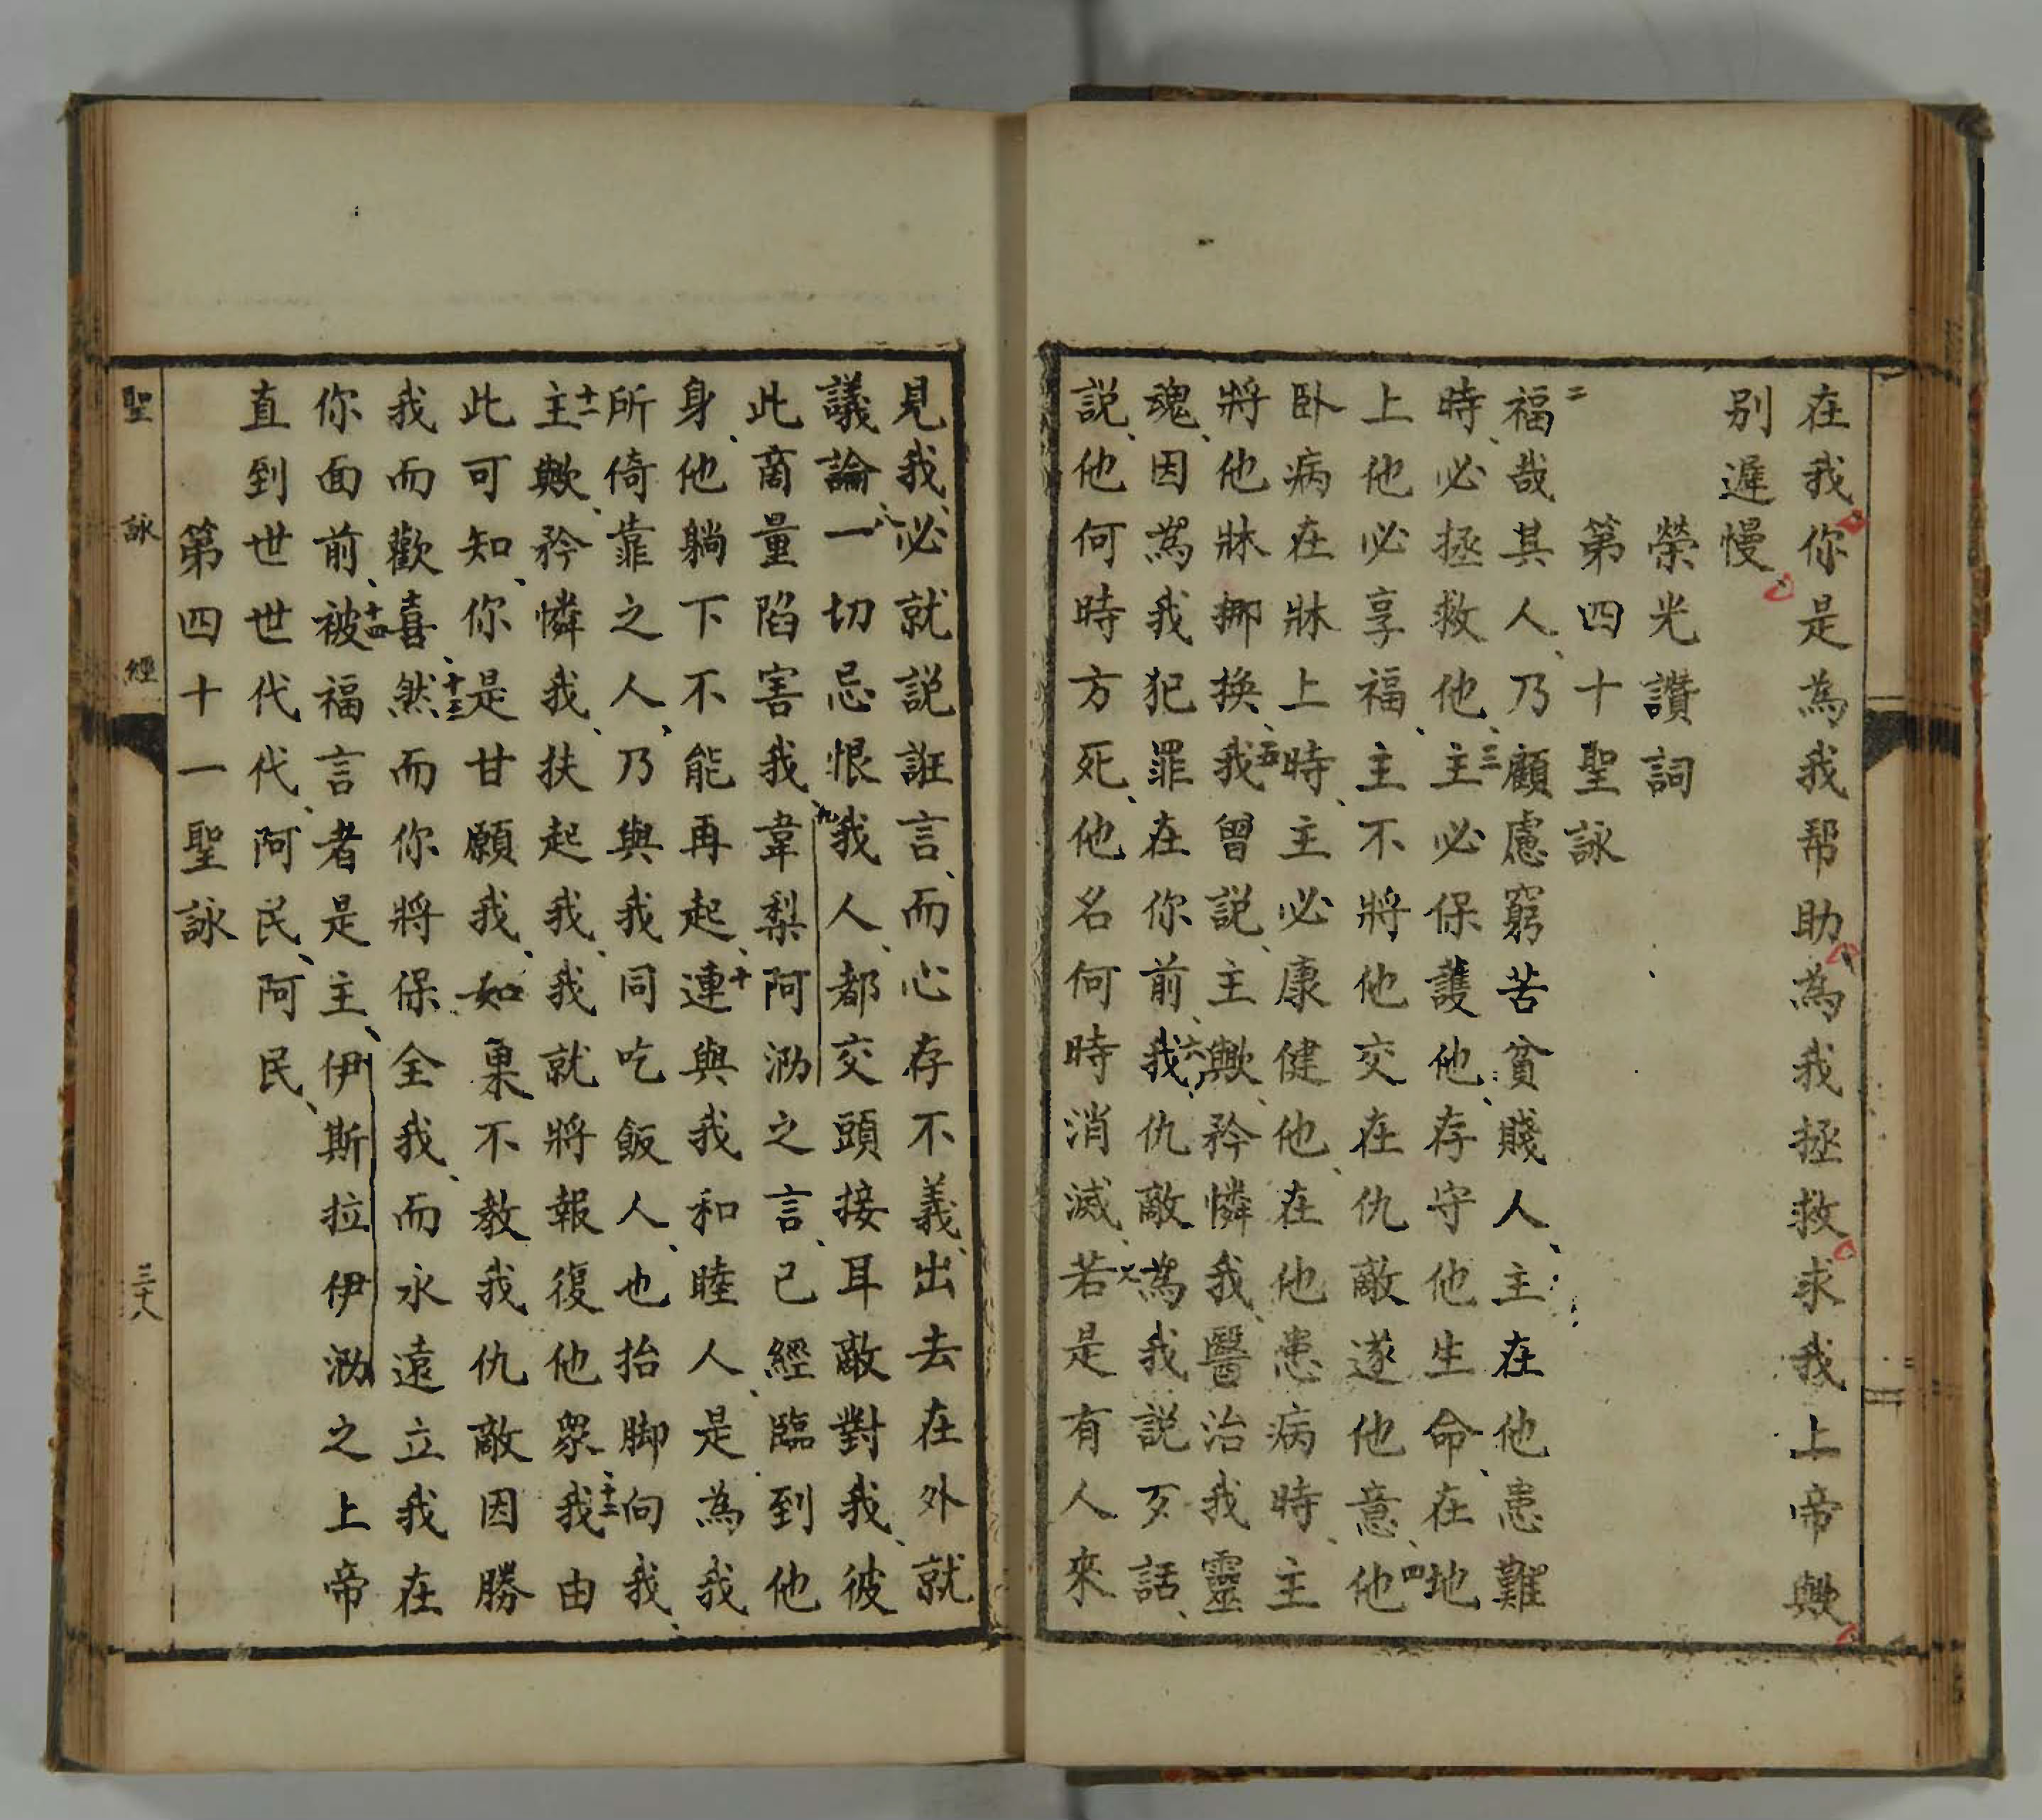 在我你是為我幇助為我拯救求我上帝歟
别遲慢
榮光讚詞
第四十聖詠
二福哉其人乃顧慮窮苦貧賤人主在他患難
時必拯救他三主必保護他存守他生命在地
上他必享福主不將他交在仇敵遂他意四他
卧病在牀上時主必康健他在他患病時主
將他牀挪換五我曾説主歟矜憐我醫治我靈
魂因為我犯罪在你前六我仇敵為我説歹話
説他何時方死他名何時消滅七若是有人來
見我必就説誑言而心存不義出去在外就
議論八一切忌恨我人都交頭接耳敵對我彼
此商量陷害我九韋梨阿泐之言已經臨到他
身他躺下不能再起十連與我和睦人是為我
所倚靠之人乃與我同吃飯人也抬脚向我
十一主歟矜憐我扶起我我就將報復他衆十二我由
此可知你是甘願我如果不教我仇敵因勝
我而歡喜十三然而你將保全我而永遠立我在
你面前十四被福言者是主伊斯拉伊泐之上帝
直到世世代代阿民阿民
第四十一聖詠
聖詠經
三十八